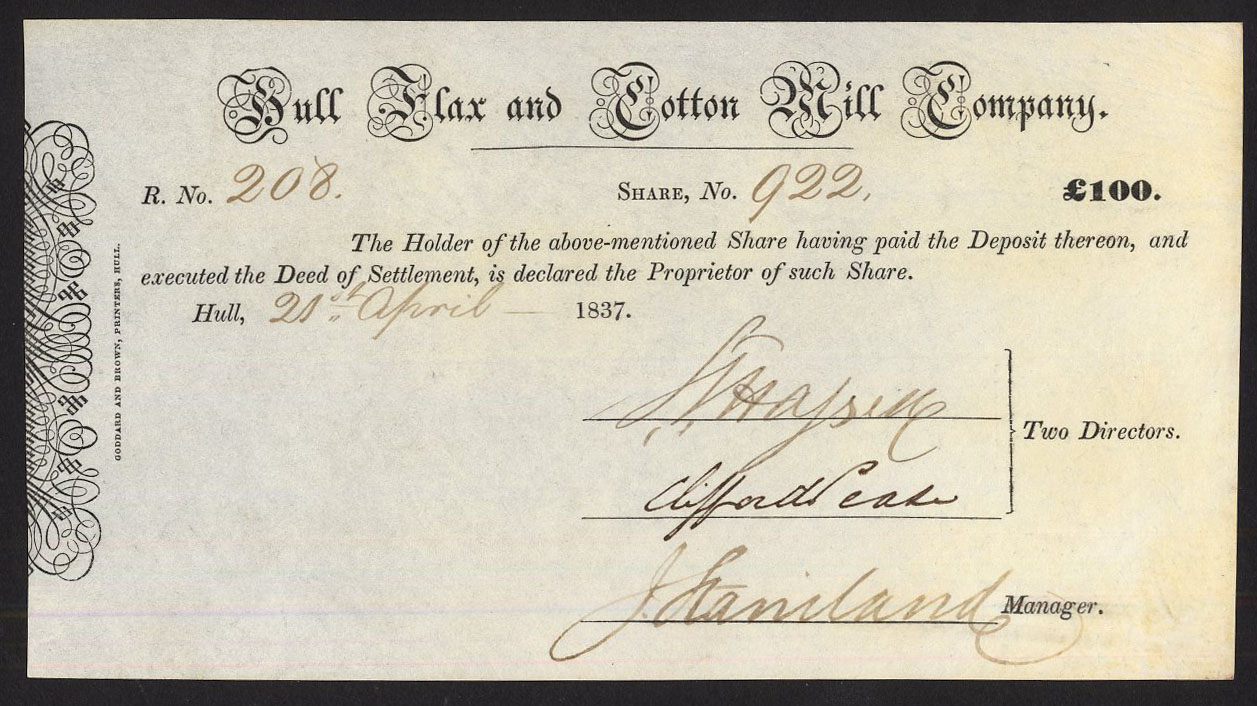 Hull Flax and Cotton Mill Company.
R. No. 208. Share, No. 922. £100.
The Holder of the above-mentioned Share having paid the Deposit thereon, and
executed the Deed of Settlement, is declared the Proprietor of such Share.
Hull, 21st April — 1837.
Two Directors.
Clifford Pease
J. Staniland Manager.
GODDARD AND BROWN, PRINTERS, HULL.